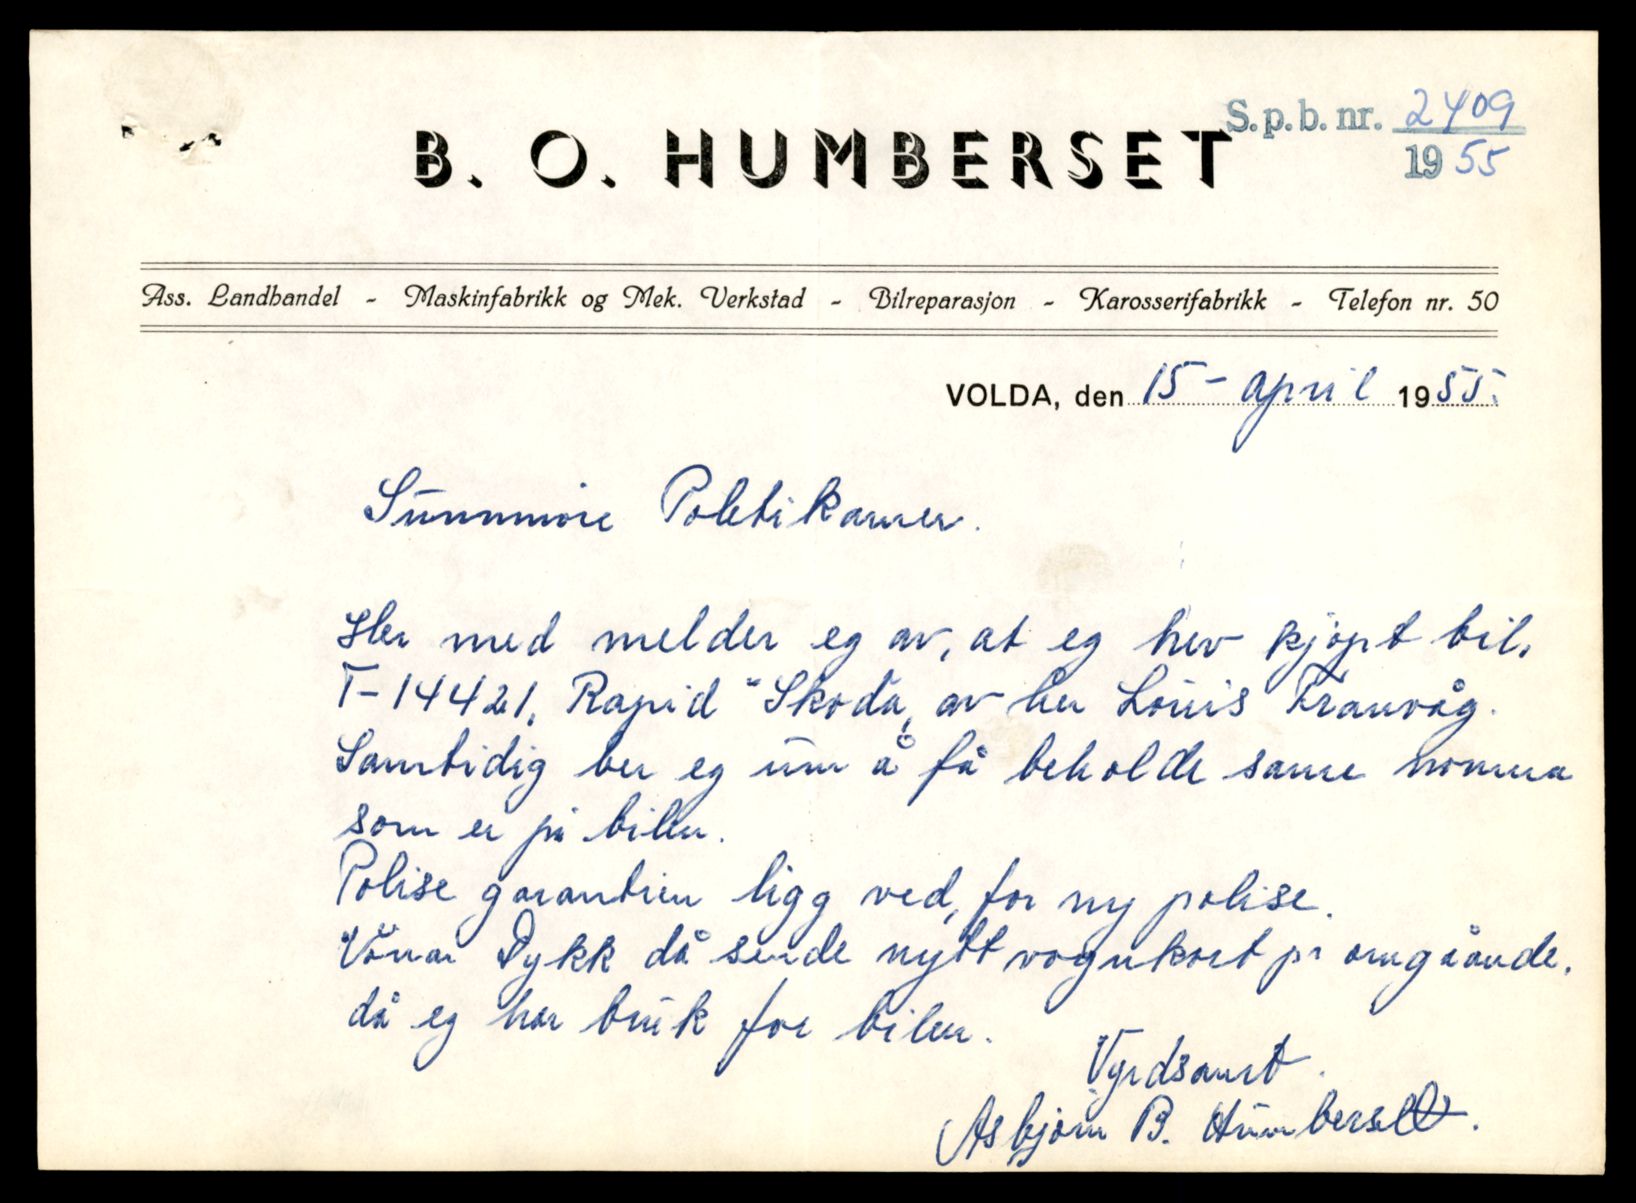 S.p.b. nr. 2409
1955
B. O. HUMBERSET
Ass. Landhandel - Maskinfabrikk og Mek. Verkstad - Bilreparasjon - Karosserifabrikk - Telefon nr. 50
VOLDA, den 15 - april 1955.
Sunnmöre Politikamer.
Her med melder eg av, at eg hev kjöpt bil,
T-14421, Rapid "Skoda, av her Louis Franvåg.
Samtidig ber eg um å få beholde same nomra
som er på bilen.
Polise garantien ligg ved, for ny polise.
Vönar Dykk då sende nytt vognkort pr omgåande.
då eg har bruk for bilen.
Vyrdsamt.
Asbjörn B. Humberset.